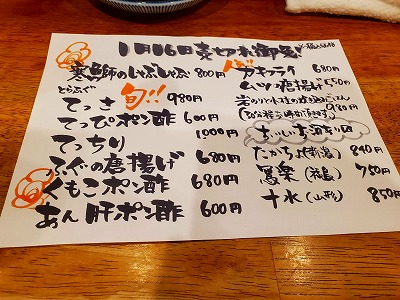 1月16日売切れ御免!
寒鰤のしゃぶしゃぶ 800円
とらふぐ
てっさ 旬!! 980円
てっぴポン酢 600円
てっちり 1000円
ふぐの唐揚げ 680円
くもこポン酢 680円
あん肝ポン酢 600円
カキフライ 680円
ムツの唐揚げ 550円
980円
おいしいお酒
たかちよ(新潟) 840円
寫楽(福島) 750円
十水(山形) 850円